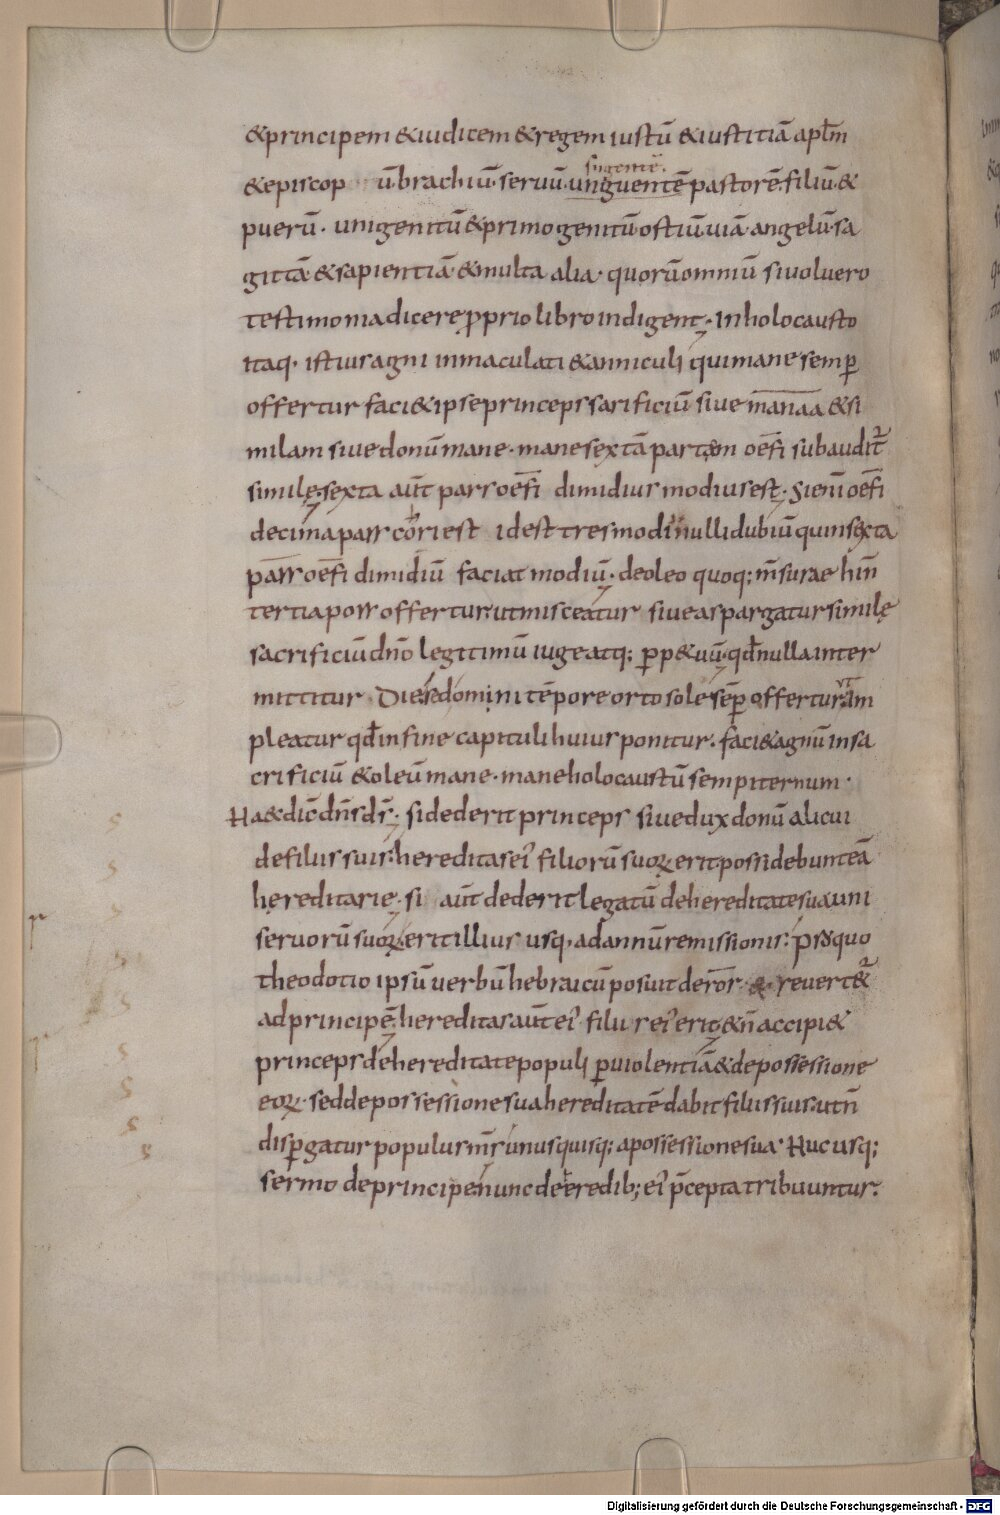 &principem &iudicem &regem iustū &iustitiā apłm
sugentē.
&episcop ū·brachiū·seruū·unguentē pastorē·filiū·&
puerū· unigenitū&primogenitū·ostiū·uiā·angelū·sa
gittā·&sapientiā·&multa alia· quorū omniū si uoluero
testimonia dicere ꝓprio libro indigent· In holocausto
itaq· istius agni inmaculati &anniculi qui mane semꝑ
offertur faci& ipse princeps sarificiū siue manaa &si
milam siue donū mane· mane sextā partem oefi subaudit̄
similę· sexta aūt pars oefi dimidius modius est· Si eni oefi
decima pars cori est id est tres modi nulli dubiū quin sexta
pars oefi dimidiū faciat modiū· de oleo quoq; m̄surae hin
tertia pars offertur· ut misceatur siue aspargatur similę
sacrificiū dn̄o legitimū iuge atq; ꝑp&uū· qd̄ nulla inter
mittitur Dies domini tēpore orto sole sēꝑ offertur·
pleatur qd̄ in fine capituli huius ponitur· faci& agnū in sa
crificiū &oleū mane· mane holocaustū sempiternum·
Ha& dic̄ dn̄s ds̄· si dederit princeps siue dux donū alicui
de filiis suis· hereditas ei' filiorū suoꝝ erit· possidebunt eā
hereditarie· si aūt dederit legatū de hereditate sua uni
seruorū suoꝝ· erit illius usq· ad annū remissionis· pro quo
theodotio ipsū uerbū hebraicū posuit deror· & reuert&
ad principē· hereditas aūt ei' filii ei' erit· &n̄ accipi&
princeps de hereditate populi ꝑ uiolentiā &de possessione
eoꝝ· sed de possessione sua hereditatē dabit filiis suis· ut n̄
disꝑgatur populus m̄s unusquisq; a possessione sua· Huc usq;
sermo de principe· nunc de eredib; ei' p̄cepta tribuuntur·
Digitalisierung gefördert durch die Deutsche Forschungsgemeinschaft - DFG